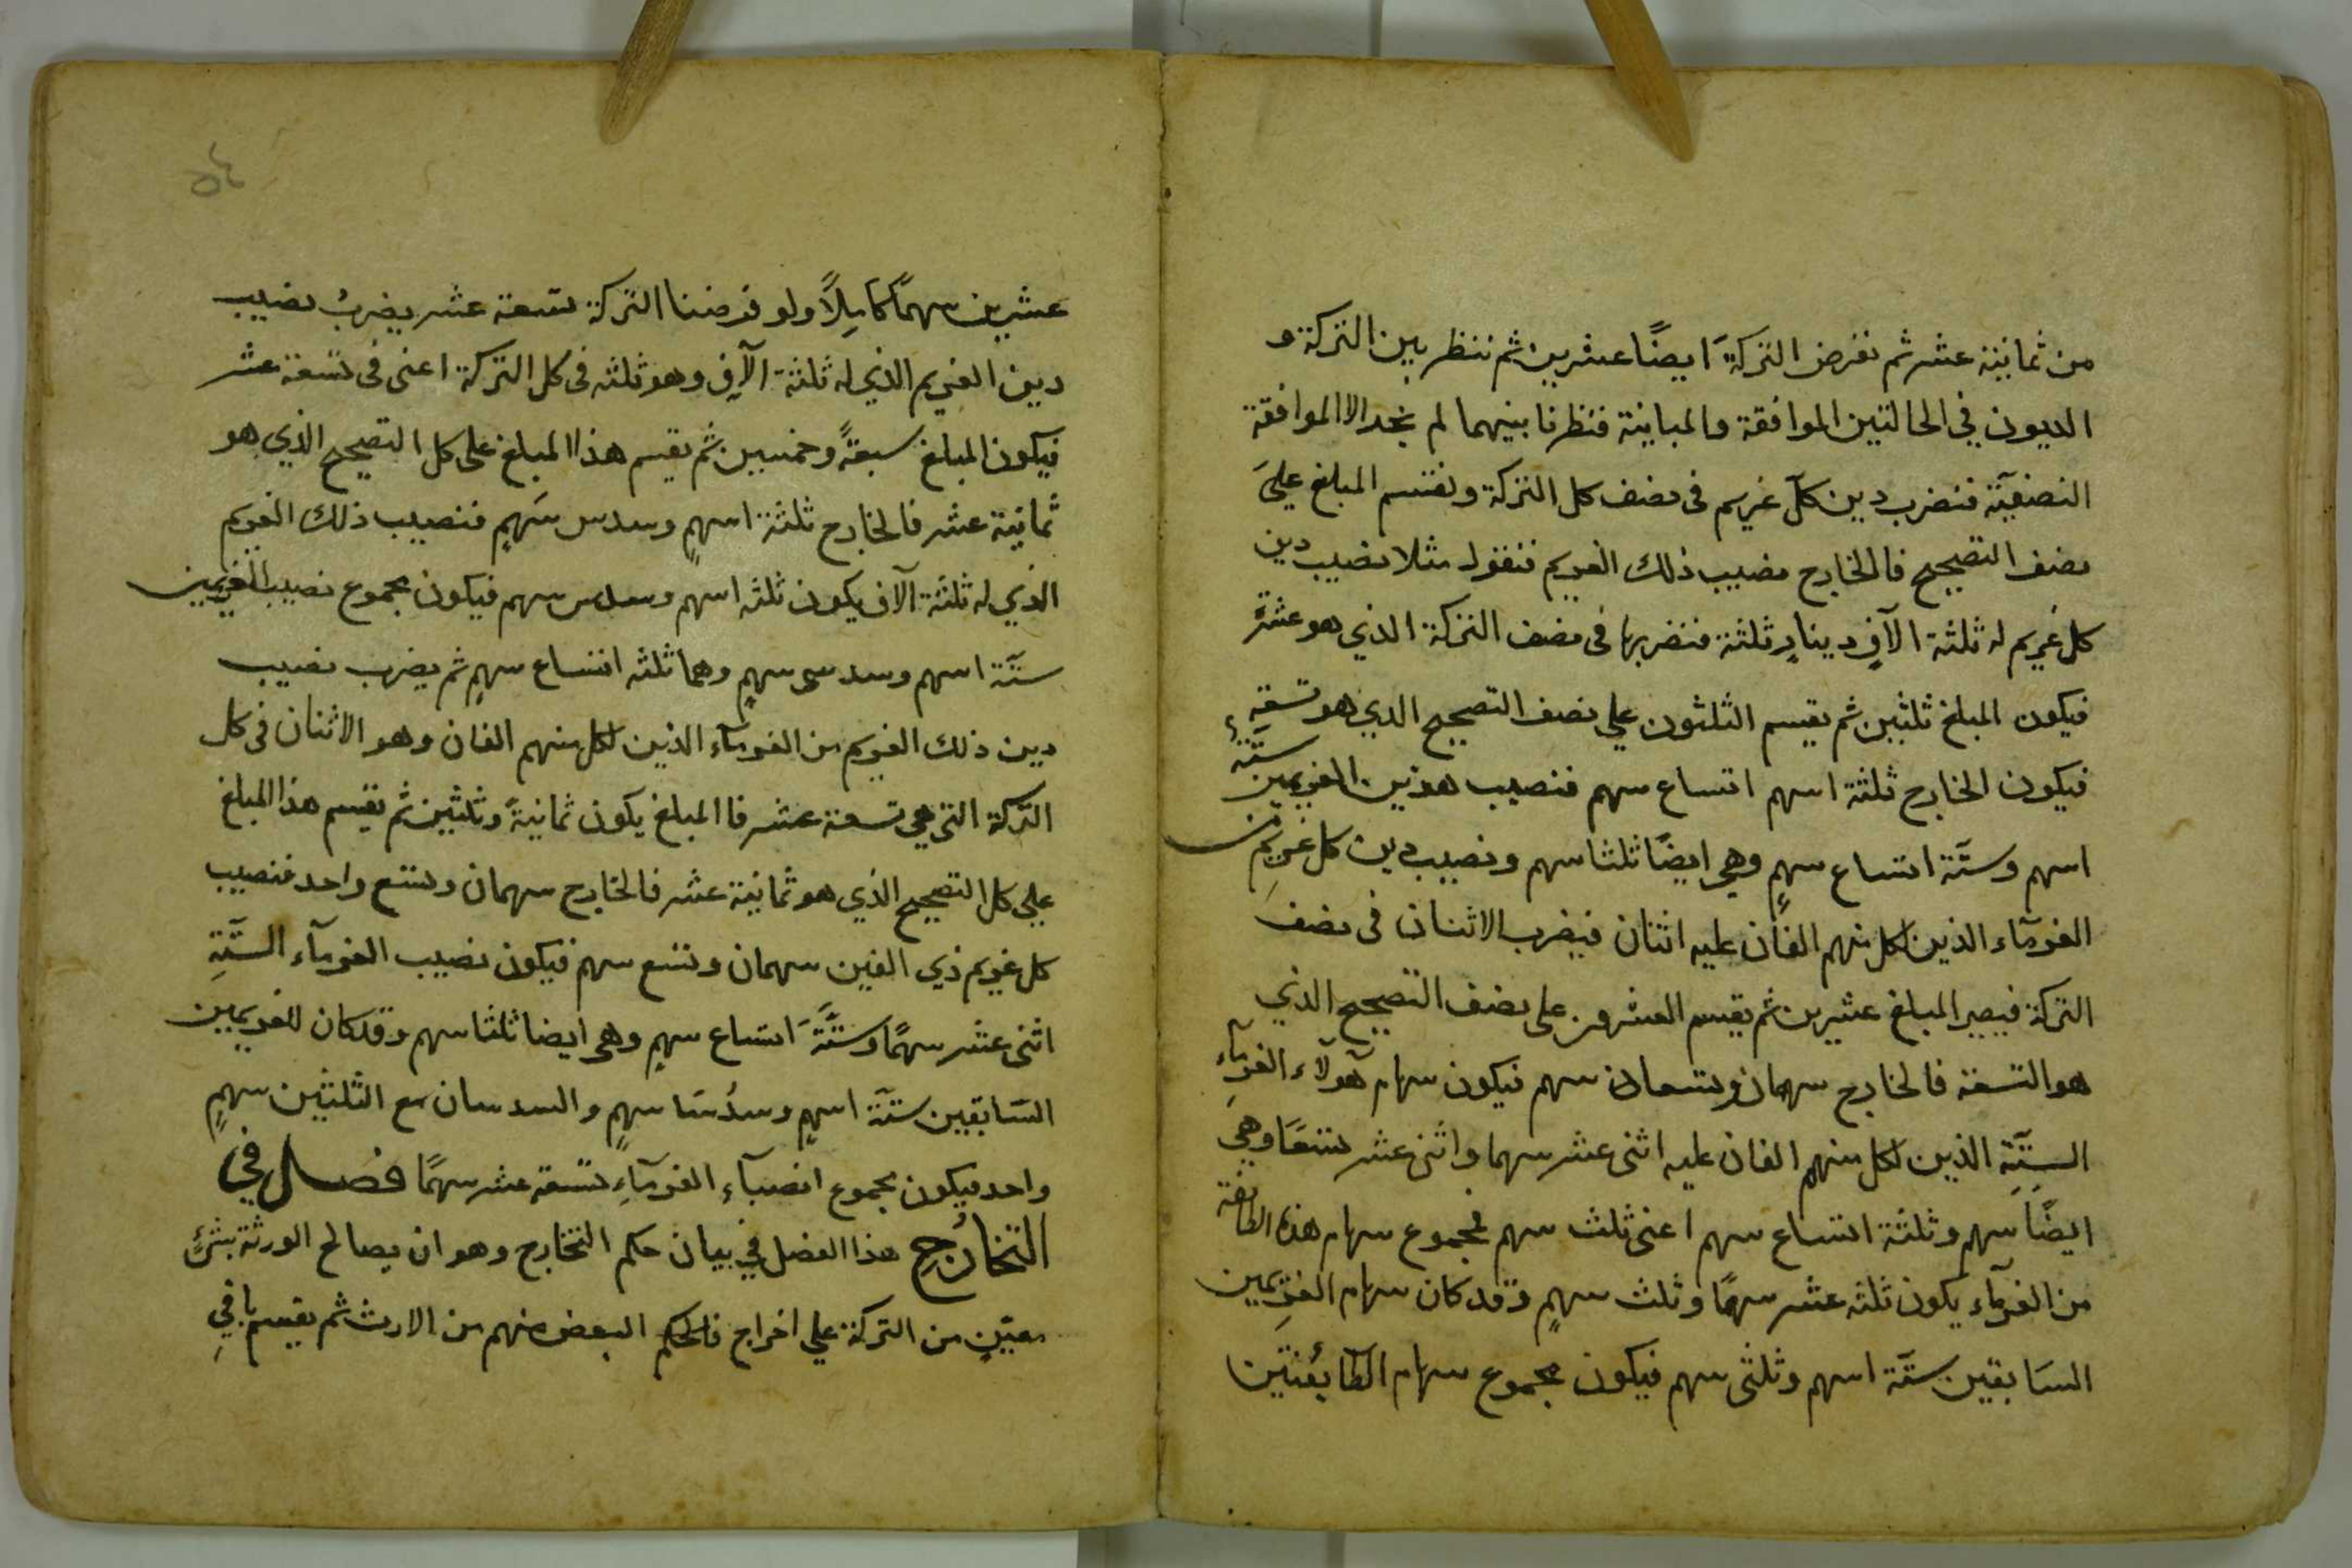 من ثمانية عشر ثم نفرض التركةَ ايضًا عشرين ثم ننظر بين التركة و
الديون في الحالتين الموافقة والمباينة فنظرنا بينهما لم نجد الا الموافقة
النصفيّة فنضرب دين كلّ غريم فى نصف كل التركة ونقسم المبلغ عليَ
نصف التصحيح فالخارج نصيب ذلك الغريم فنقول مثلا نصيب دين
كل غريم له ثلثة الآفٍ دينارٍ ثلثة فنضربها فى نصف التركة الذي هو عشرة
فيكون المبلغ ثلثين ثم يقسم الثلثون علي نصف التصحيح الذي هو تسعةٍ
فيكون الخارج ثلثة اسهم اتساع سهم فنصيب هذين الغريمين ستّة
اسهم وستّة اتساع سهمٍ وهي ايضًا ثلثا سهم ونصيب دين كل غريمٍ من
الغرمآء الذين لكل منهم الفان عليه اثنان فيضرب الاثنان فى نصف
التركة فيصير المبلغ عشرين ثم يقسم العشرون على نصف التصحيح الذي
هو التسعة فالخارج سهمان وتسعان سهم فيكون سهام هآولآء الغرمآء
الستّةِ الذين لكل منهم الفان عليه اثنى عشر سهما واثنى عشر تسعًا وهي
ايضًا سهم وثلثة اتساع سهم اعنى ثلث سهم فمجموع سهام هذه الطائفة
من الغرمآء يكون ثلثه عشر سهمًا وثلث سهمٍ وقد كان سهام الغريمين
السَابقين ستّة اسهم وثلثى سهم فيكون مجموع سهام الطّائفتين
عشرين سهمًا كامِلاً ولو فرضنا التركة تسعة عشر يضربُ نصيب
دين الغريم الذي له ثلثة الآفٍ وهو ثلثه فى كل التركة اعنى فى تسعة عشر
فيكون المبلغ سبعةً وخمسين ثم يقسم هذا المبلغ على كل التصحيح الذي هو
ثمانية عشر فالخارج ثلثة اسهمٍ وسدس سَهمٍ فنصيب ذلك الغريم
الذي له ثلثة آلاف يكون ثلثه اسهم وسدس سهم فيكون مجموع نصيب الغريمين
ستّة اسهم وسدسى سهمٍ وهما ثلثه اتساع سهمٍ ثم يضرب نصيب
دين ذلك الغريم من الغرمآء الذين لكل منهم الفان وهو الاثنان فى كل
التركة التى هي تسعة عشر فالمبلغ يكون ثمانيةً وثلثين ثم يقسم هذا المبلغ
علي كل التصحيح الذي هو ثمانية عشر فالخارج سهمان وتسع واحد فنصيب
كل غريم ذي الفين سهمان وتسع سهم فيكون نصيب الغرمآء الستّةِ
اثنى عشر سهمًا وستّةَ اتساع سهمٍ وهي ايضا ثلثا سهم وقد كان للغريمين
السَابقين ستّة اسهمٍ وسدُسَا سهمٍ والسدسان مع الثلثين سهمٍ
واحد فيكون مجموع انصبآء الغرمآءِ تسعة عشر سهمًا فصل في
التخارُجِ هذا الفصل في بيان حكم التخارج وهو ان يصالح الورثة بشئٍ
معيّنٍ من التركة علي اخراج فالحكم البعض منهم من الارث ثم يقسم باقي